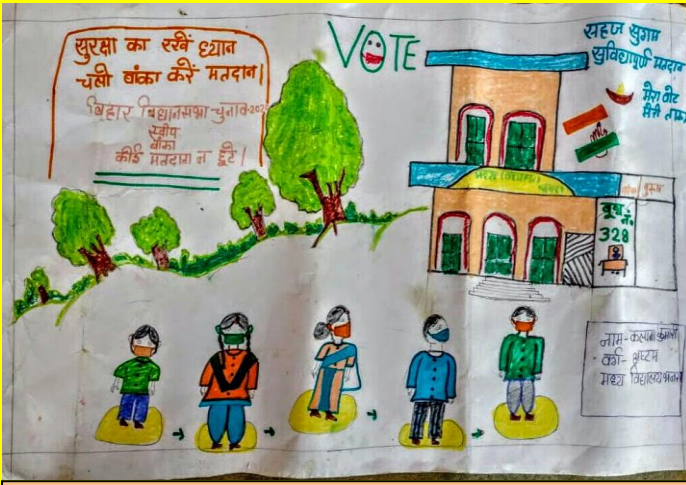 सुरक्षा का रखें ध्यान
चलो बांका करें मतदान।
बिहार विधानसभा चुनाव-202
स्वीप
बांका
कोई मतदाता न छूटे।
VOTE
सहज सुगम
सुविधापूर्ण मतदान
मेरा वोट
मेरी ताकत
मध्य विद्यालय
पुरुष
बूथ
नं.
328
नाम- कल्पना कुमारी
वर्ग- अष्टम
मध्य विद्यालय